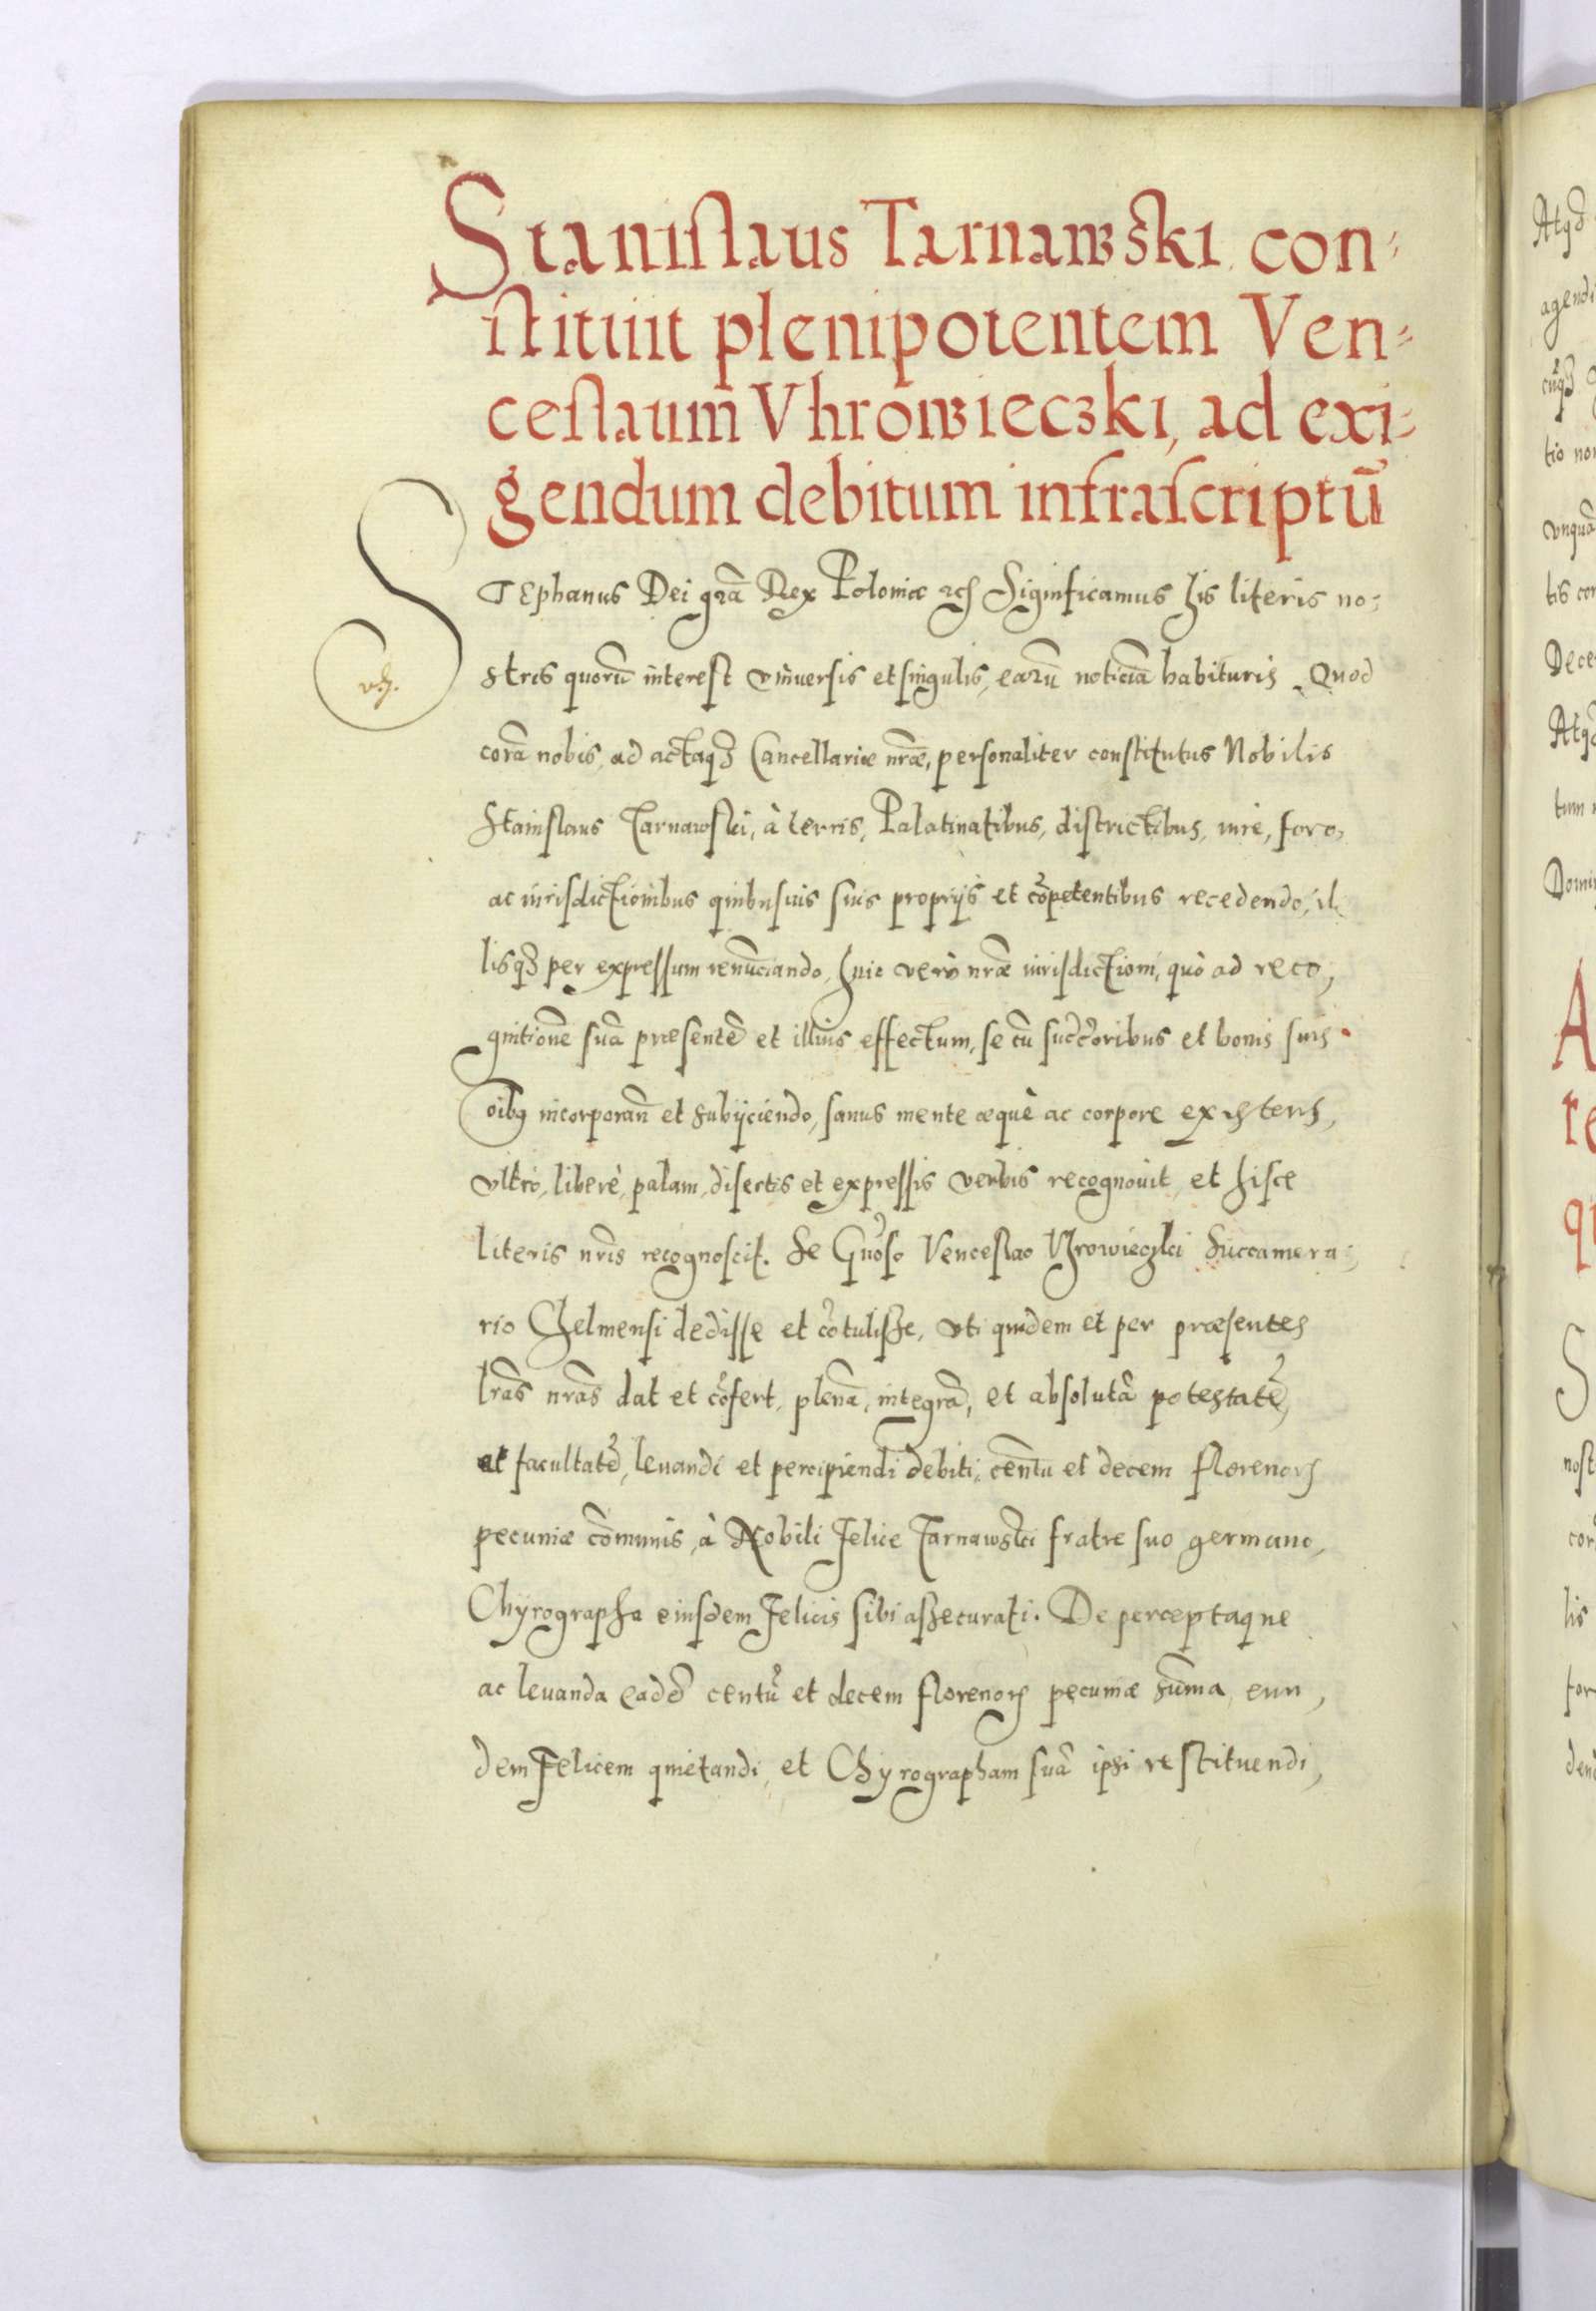 Stanislaus Tarnawski con=
stituit plenipotentem Ven=
ceslaum Vhrowieczki, ad exi=
gendum debitum infrascriptū
STEphanus Dei grā Rex Poloniæ etc Significamus his literis no=
stris quorū interest vniuersis et singulis, earū noticiā habituris. Quod
corā nobis, ad actaqȝ Cancellariæ nrāe, personaliter constitutus Nobilis
Stanislaus Tarnawski, à terris, Palatinatibus, districtibus, iure, foro,
ac iurisdictionibus quibusuis suis proprijs et cōpetentibus recedendo, il
lisqȝ per expressum renūciando, huic verò nrāe iurisdictioni, quò ad reco,
gnitionē suā præsentē et illius effectum, se cū succ̄oribus et bonis suis
oībꝯ incorporan̄ et subijciendo, sanus mente æquè ac corpore existens,
vltrò, liberè, palam, disertis et expressis verbis recognouit, et hisce
literis nrīs recognoscit. Se Gn̄oso Venceslao Vhrowieczki Succamera=
rio Chelmensi dedisse et cōtulisse, vti quidem et per præsentes
lrās nrās dat et cōfert, plenā, integrā, et absolutā potestatē,
et facultatē, leuandi et percipiendi debiti, centū et decem florenorꝝ
pecuniæ cōmunis, à Nobili Felice Tarnawski fratre suo germano,
Chyrographa eiusdem Felicis sibi assecurati. De perceptaque
ac leuanda eadē centū et decem florenorꝝ pecuniæ sūma, eun,
dem Felicem quietandi, et Chyrographam suā ipsi restituendi,
Atqȝ
agendi
cūqȝ
tio non
vnquā
tis con
Dece
Atqȝ
tum
Domin
A
re
qu
S
nost
cor
lis
for
dend